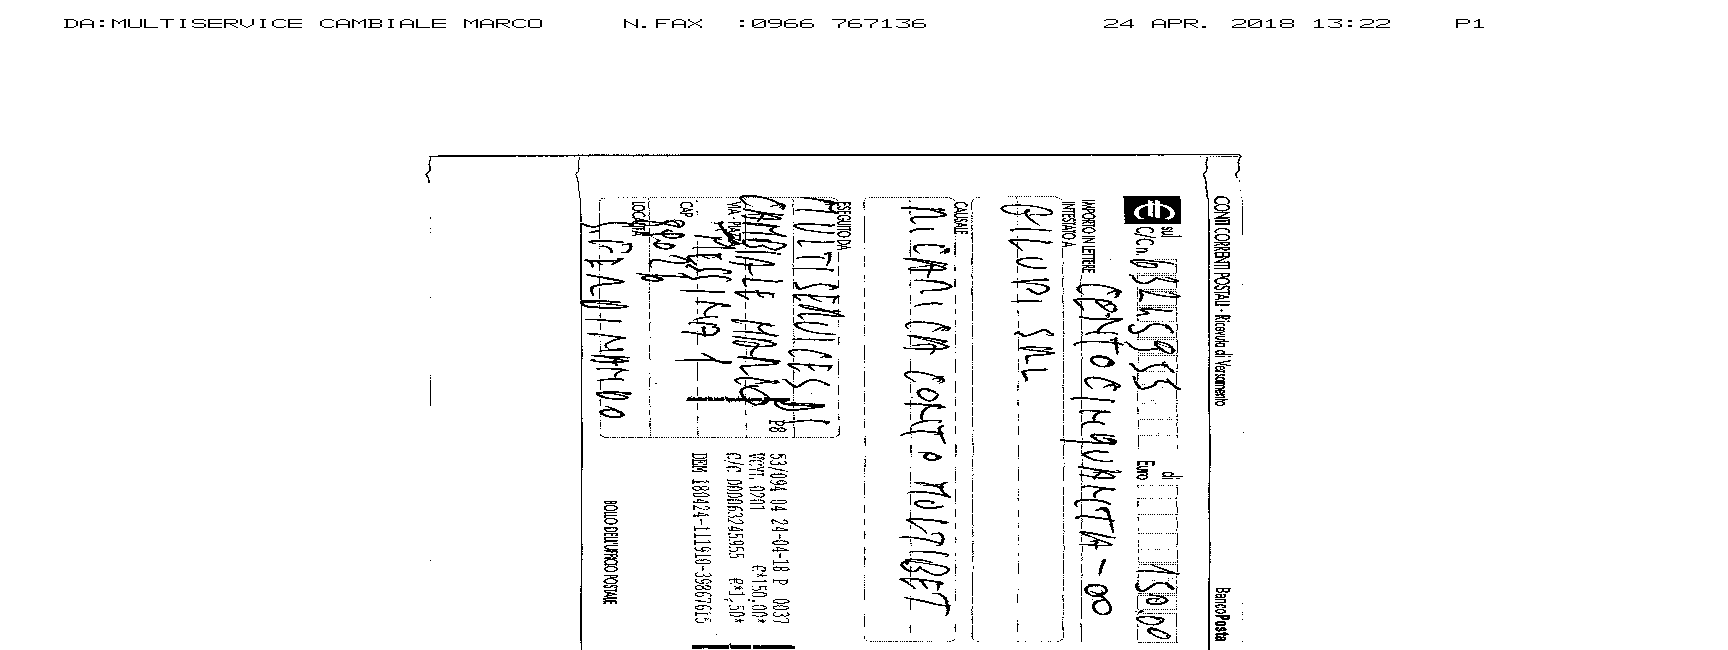 DA:MULTISERVICE CAMBIALE MARCO N.FAX :0966 767136 24 APR. 2018 13:22 P1
CONTI CORRENTI POSTALI - Ricevuta di Versamento BancoPosta
sul C/C n. 63245955 di Euro 150,00
IMPORTO IN LETTERE CENTOCINQUANTA-00
INTESTATO A
GILUPI SRL
CAUSALE
RICARICA CONTO MULTIBET
ESEGUITO DA
MULTISERVICES DI
CAMBIALE MARCO
VIA - PIAZZA MESSINA 1
CAP
LOCALITÀ
S. FERDINANDO
P8
53/094 04 24-04-18 P 0037
VCYL 0201 €*150,00*
C/C 000063245955 €*1,50*
DEM 180424-111910-39867615
BOLLO DELL'UFFICIO POSTALE